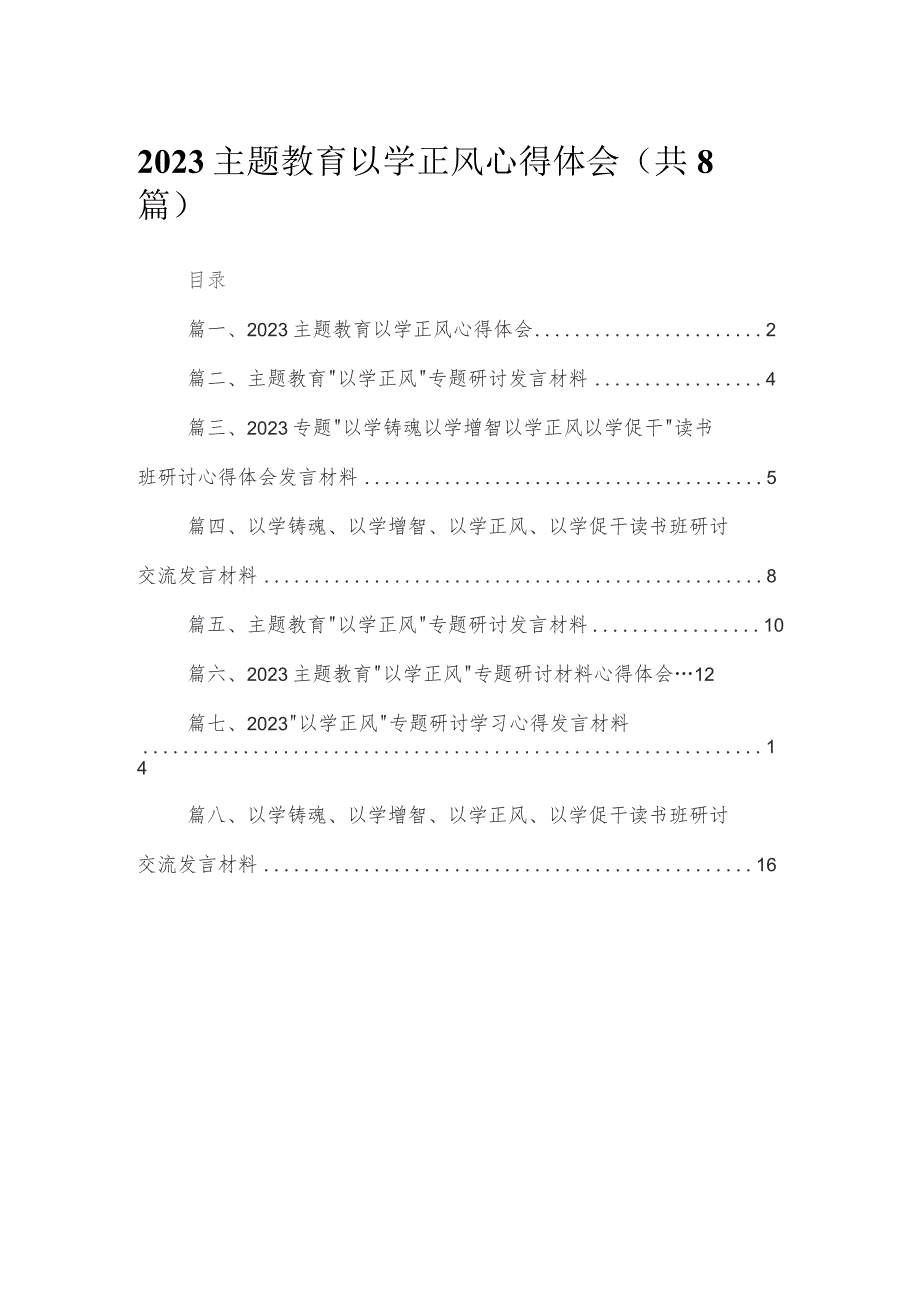 2023 主题教育以学正风心得体会（共 8
篇）
目录
篇一、2023 主题教育以学正风心得体会.......................2
篇二、主题教育"以学正风"专题研讨发言材料 .................4
篇三、2023 专题"以学铸魂以学增智以学正风以学促干"读书
班研讨心得体会发言材料 ........................................5
篇四、以学铸魂、以学增智、以学正风、以学促干读书班研讨
交流发言材料 ..................................................8
篇五、主题教育"以学正风"专题研讨发言材料.................10
篇六、2023 主题教育"以学正风"专题研讨材料心得体会…12
篇七、2023"以学正风"专题研讨学习心得发言材料
..............................................................1
4
篇八、以学铸魂、以学增智、以学正风、以学促干读书班研讨
交流发言材料 .................................................16